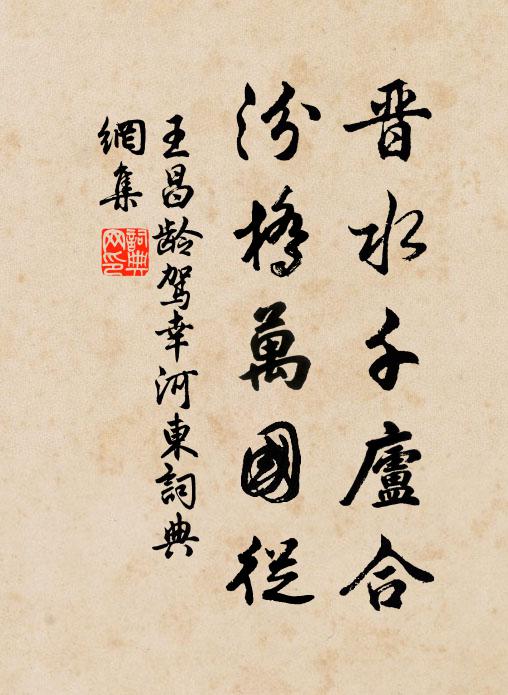 晋水千廬合
汾橋萬國從
王昌龄駕幸河東詞典
網集
詞典網印